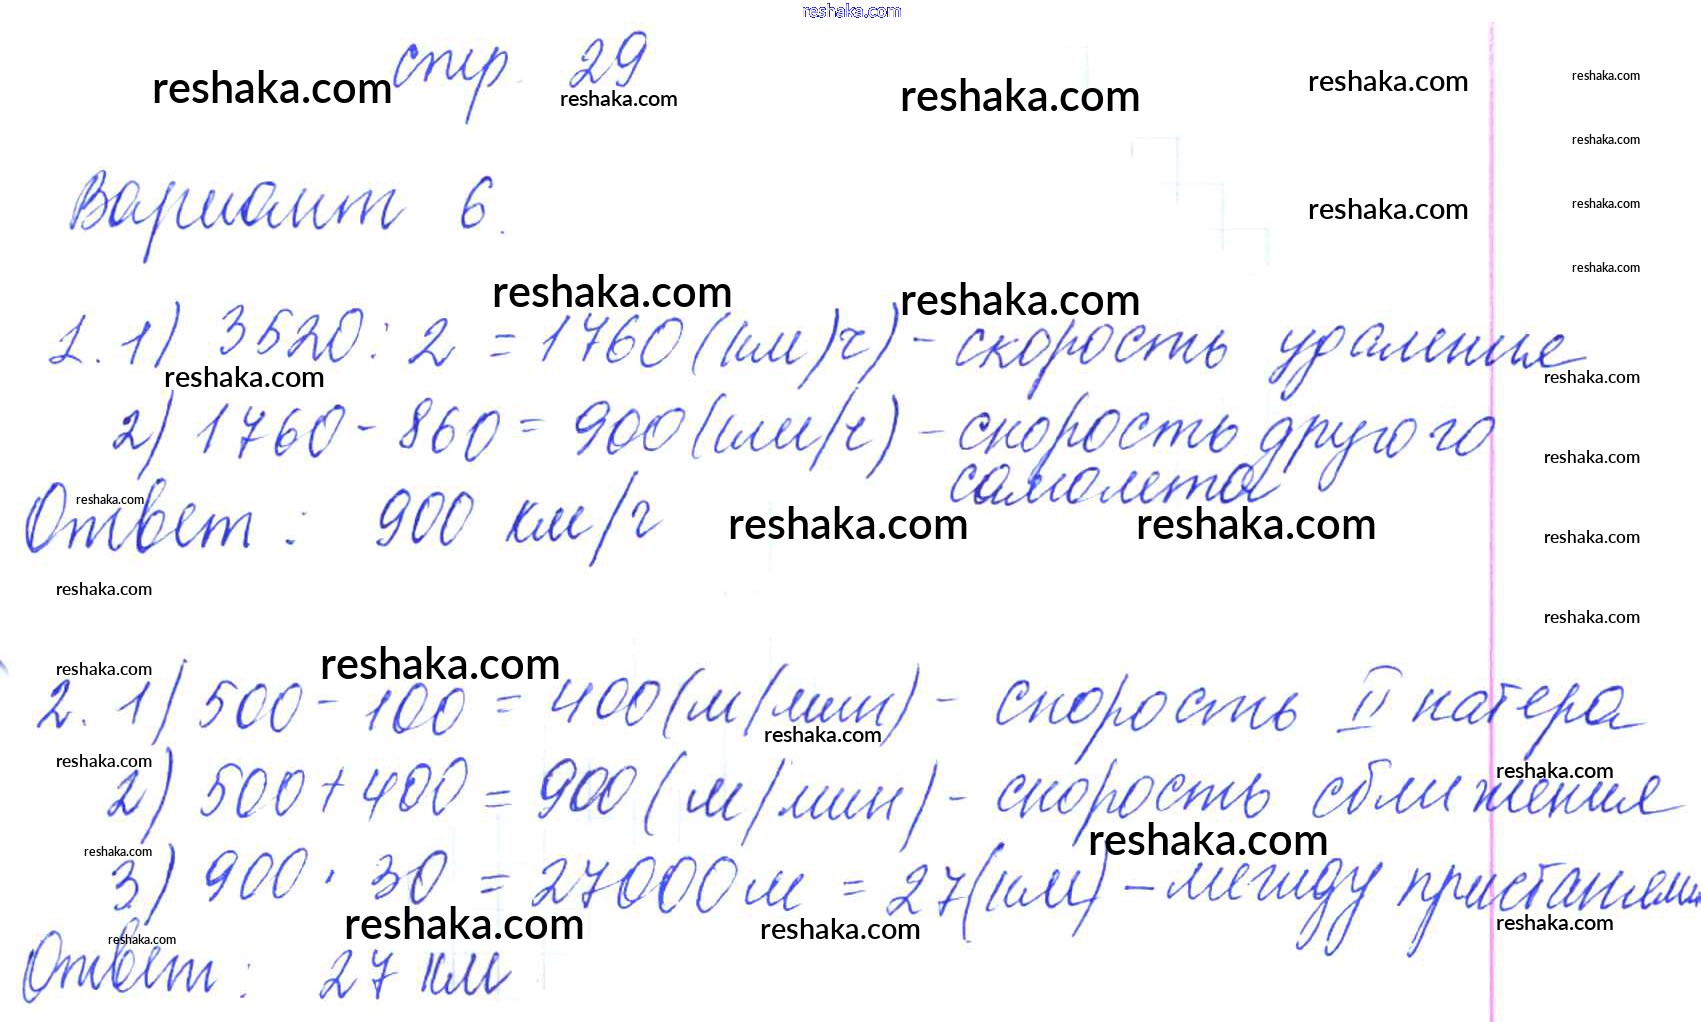 reshaka.com
стр. 29
reshaka.com reshaka.com reshaka.com reshaka.com reshaka.com
reshaka.com
Вариант 6.
reshaka.com reshaka.com
reshaka.com
reshaka.com reshaka.com
1. 1) 3520 : 2 = 1760 (км/ч) - скорость удаления
reshaka.com reshaka.com
2) 1760 - 860 = 900 (км/ч) - скорость другого
самолета
reshaka.com
reshaka.com
Ответ : 900 км/ч
reshaka.com reshaka.com reshaka.com
reshaka.com
reshaka.com
reshaka.com reshaka.com
2. 1) 500 - 100 = 400 (м/мин) - скорость II катера
reshaka.com
reshaka.com reshaka.com
2) 500 + 400 = 900 (м/мин) - скорость сближения
reshaka.com reshaka.com
3) 900 · 30 = 27000 м = 27 (км) - между пристанями
reshaka.com reshaka.com reshaka.com reshaka.com
Ответ : 27 км